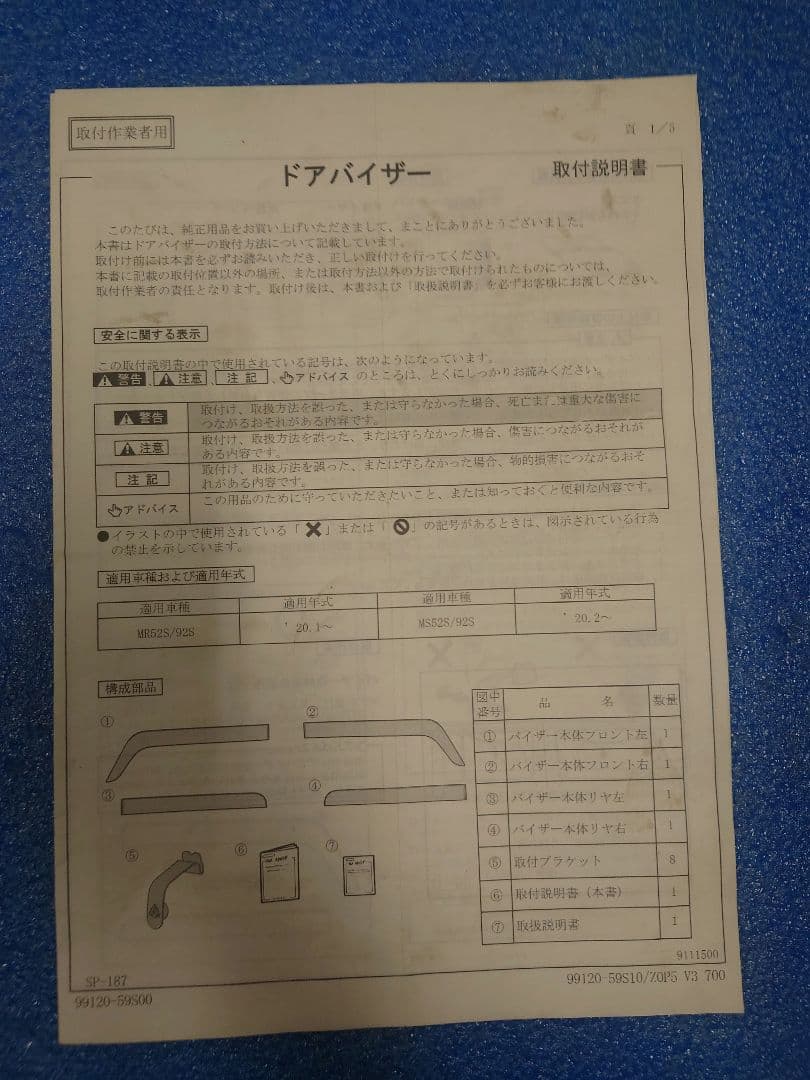 取付作業者用
頁 1/5
ドアバイザー
取付説明書
このたびは、純正用品をお買い上げいただきまして、まことにありがとうございました。
本書はドアバイザーの取付方法について記載しています。
取付け前には本書を必ずお読みいただき、正しい取付けを行ってください。
本書に記載の取付位置以外の場所、または取付方法以外の方法で取付けられたものについては、
取付作業者の責任となります。取付け後は、本書および「取扱説明書」を必ずお客様にお渡しください。
安全に関する表示
この取付説明書の中で使用されている記号は、次のようになっています。
警告、注意、注記、アドバイス のところは、とくにしっかりお読みください。
警告
取付け、取扱方法を誤った、または守らなかった場合、死亡または重大な傷害に
つながるおそれがある内容です。
注意
取付け、取扱方法を誤った、または守らなかった場合、傷害につながるおそれが
ある内容です。
注記
取付け、取扱方法を誤った、または守らなかった場合、物的損害につながるおそ
れがある内容です。
アドバイス
この用品のために守っていただきたいこと、または知っておくと便利な内容です。
●イラストの中で使用されている「❌」または「🚫」の記号があるときは、図示されている行為
の禁止を示しています。
適用車種および適用年式
適用車種 適用年式 適用車種 適用年式
MR52S/92S '20.1～ MS52S/92S '20.2～
構成部品
① ②
③ ④
⑤ ⑥ ⑦
図中
番号
品名 数量
① バイザー本体フロント左 1
② バイザー本体フロント右 1
③ バイザー本体リヤ左 1
④ バイザー本体リヤ右 1
⑤ 取付ブラケット 8
⑥ 取付説明書（本書） 1
⑦ 取扱説明書 1
9111500
SP-187
99120-59S00
99120-59S10/ZOP5 V3 700